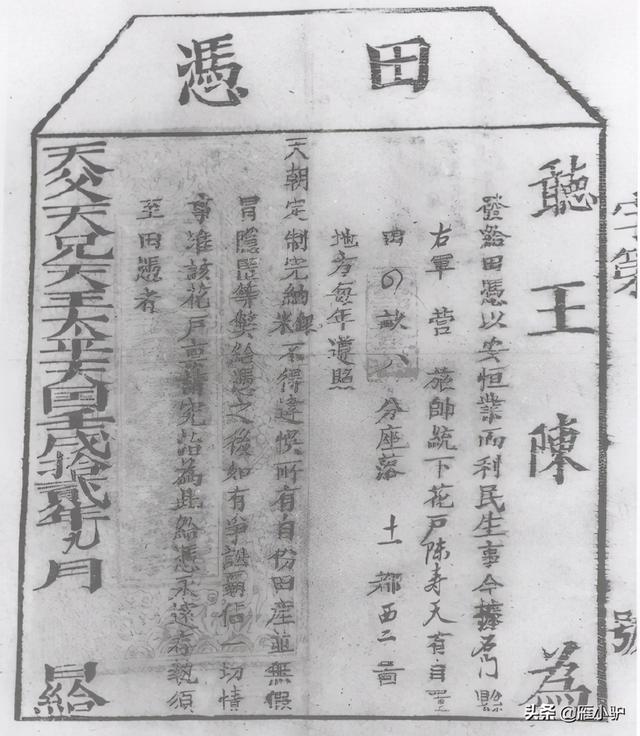 田憑
字第 號
聽王陳為
發給田憑以安恒業而利民生事今據石門縣
右軍 營 旅帥統下花戶陳壽天有自置
田の畝八 分座落 十一 都西二啚
地產每年遵照
天朝定制完納銀米不得違悞所有自份田產並無假
冒隱匿等弊給憑之後如有爭訟霸佔一切情
事準該花戶稟請究治為此給憑永遠存執須
至田憑者
天父天兄天王太平天囯壬戌拾貳年九月 日給
头条 @雁小驴